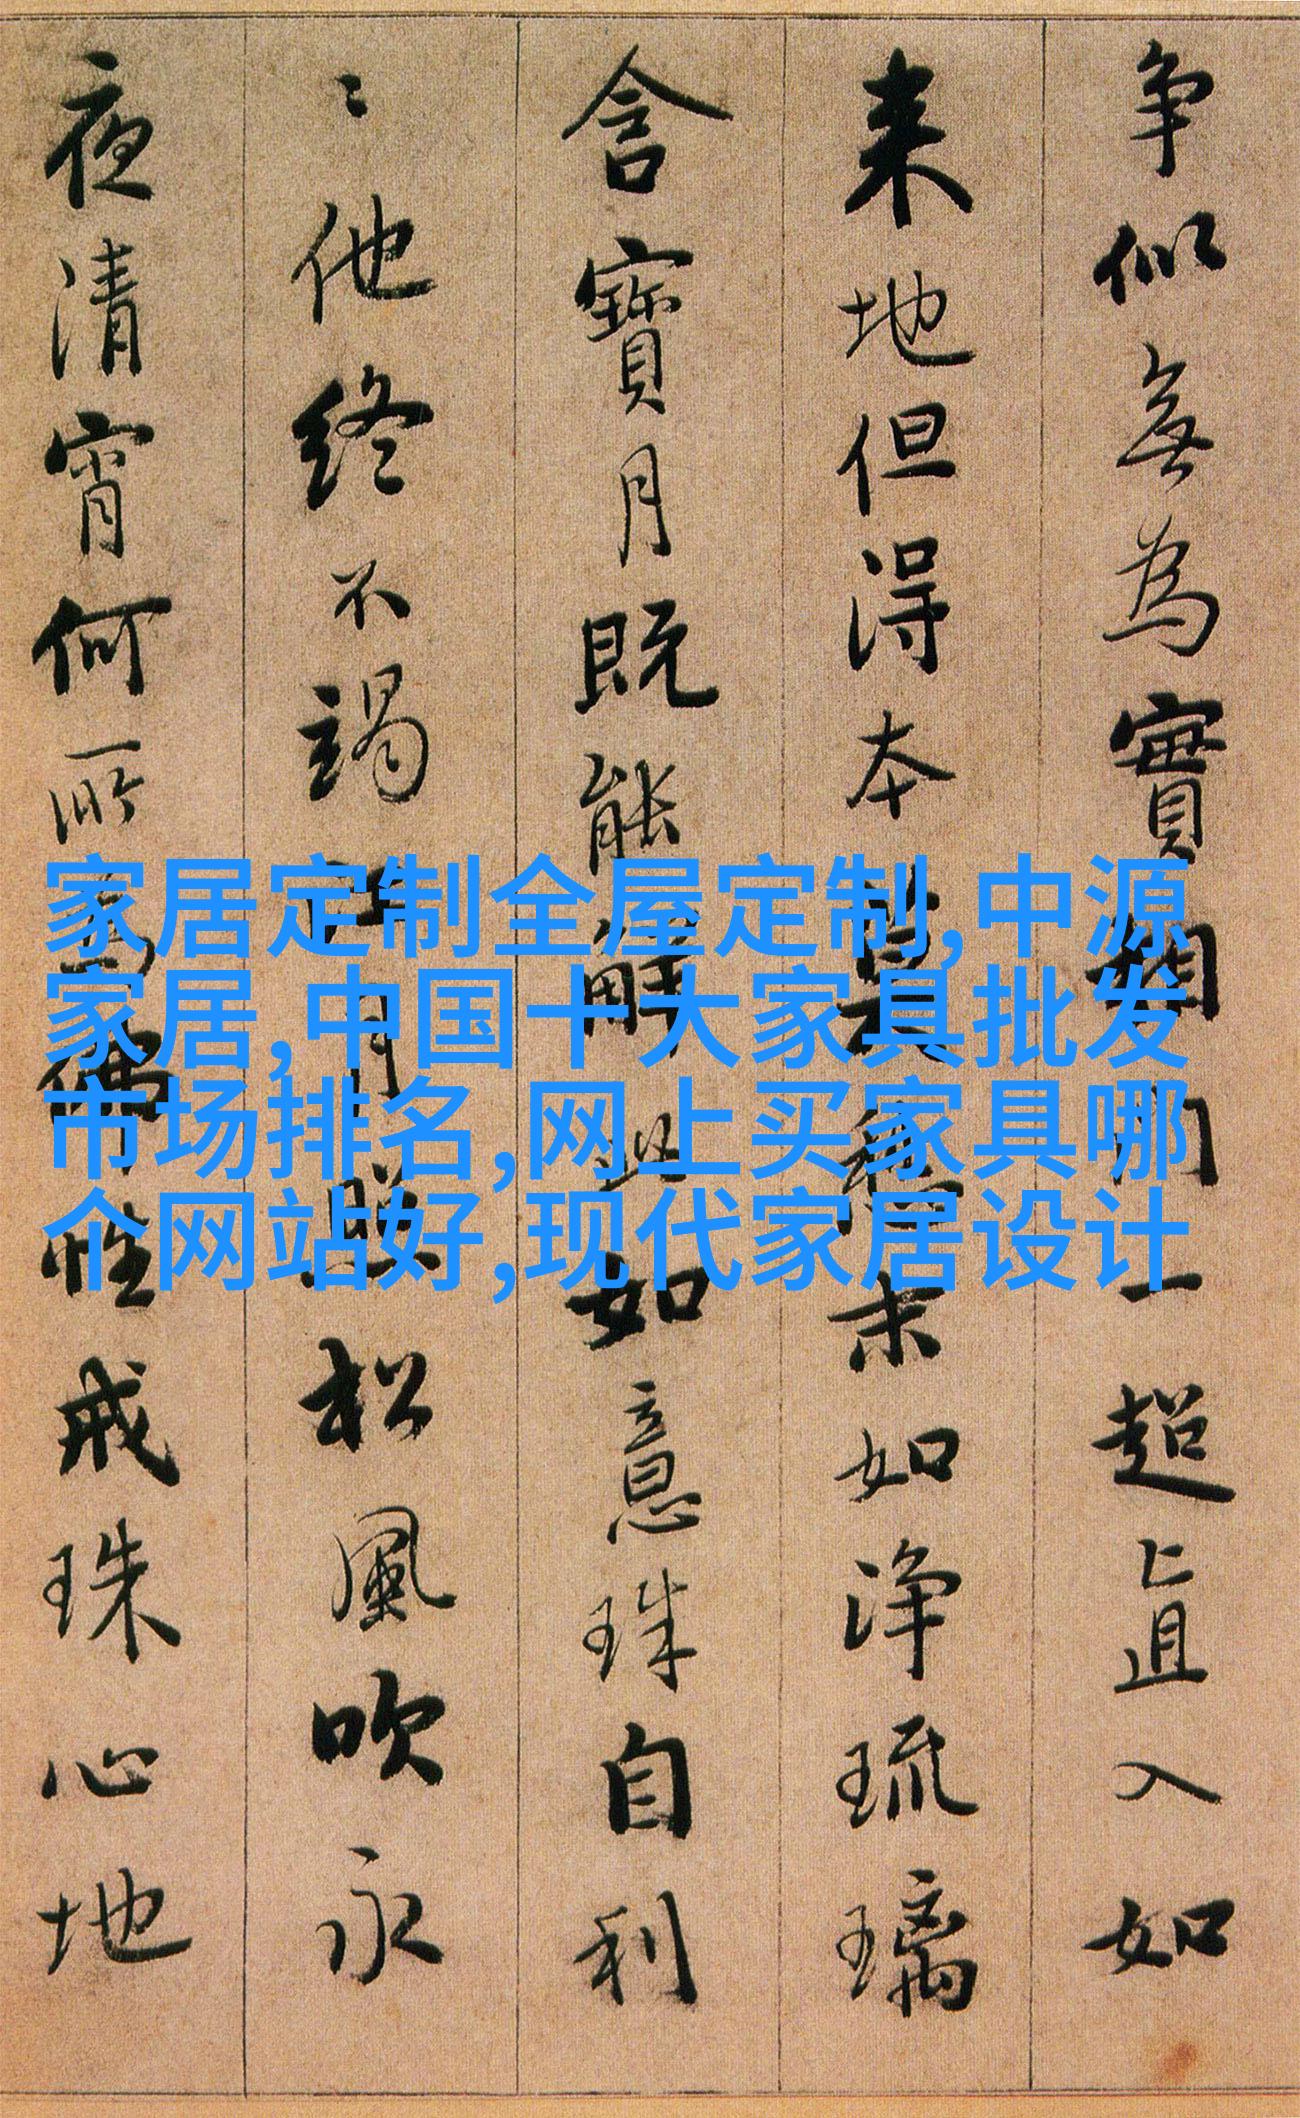 争似無為實相門一超直入如
来地但得本莫愁末如净琉璃
含寶月既能解此如意珠自利
〻他終不竭江月照松風吹永
夜清宵何所為佛性戒珠心地
家居定制全屋定制,中源
家居,中国十大家具批发
市场排名,网上买家具哪
个网站好,现代家居设计